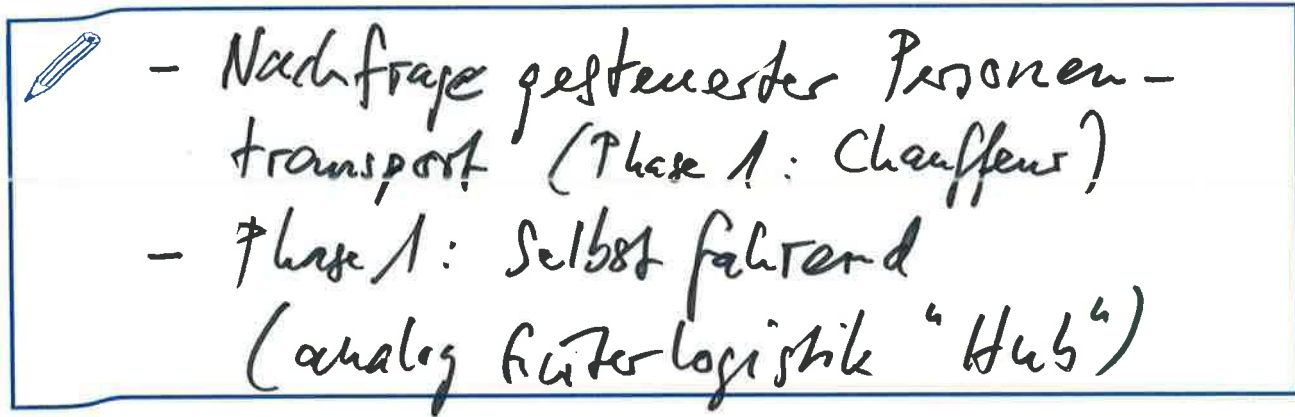 - Nachfrage gesteuerter Personen-
transport (Phase 1: Chauffeur)
- Phase 1: Selbst fahrend
(analog Güterlogistik "Hub")